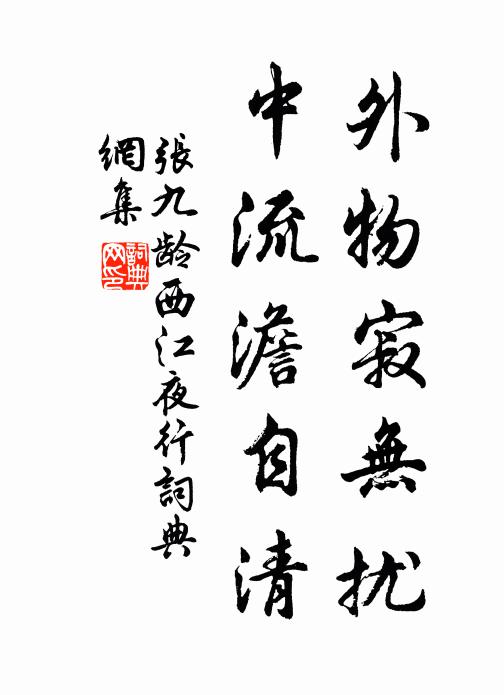 外物寂無扰
中流澹自清
張九龄西江夜行詞典
網集
詞典
网印